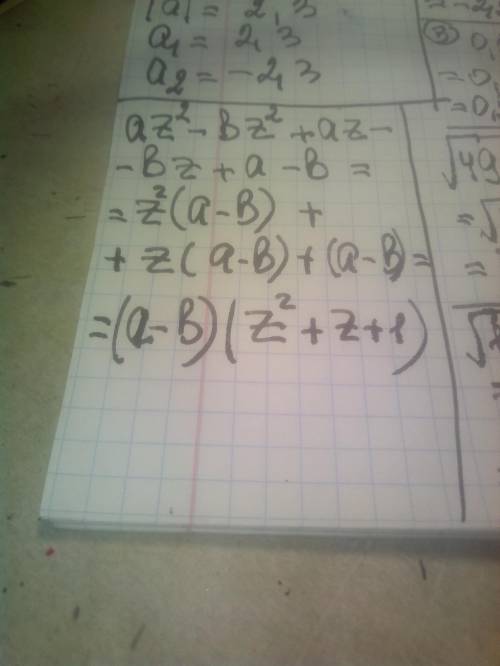 |a| = 2,3
a₁ = 2,3
a₂ = -2,3
az² - bz² + az -
- bz + a - b =
= z²(a-b) +
+ z(a-b) + (a-b) =
= (a-b)(z² + z + 1)
= -2,
③ 0,
= 0,
= 0,
√49
= √
=
√
=